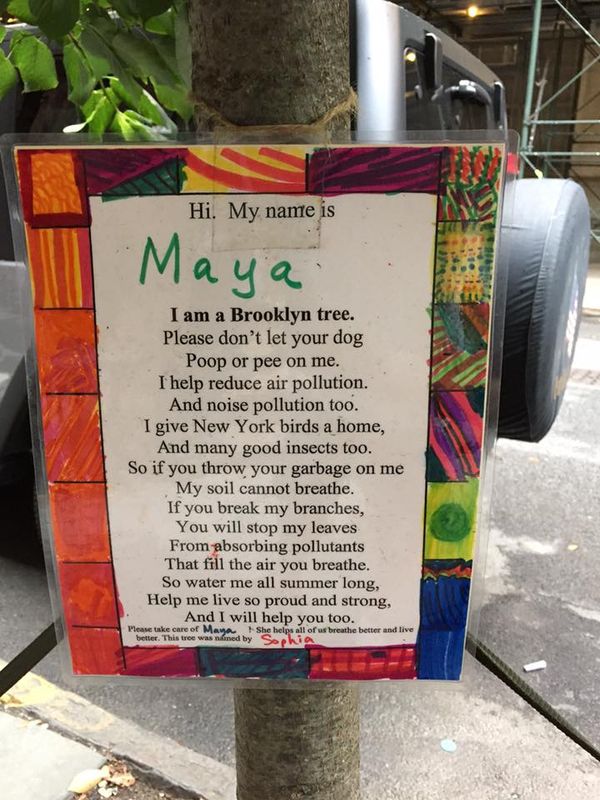 Hi. My name is
Maya
I am a Brooklyn tree.
Please don't let your dog
Poop or pee on me.
I help reduce air pollution.
And noise pollution too.
I give New York birds a home,
And many good insects too.
So if you throw your garbage on me
My soil cannot breathe.
If you break my branches,
You will stop my leaves
From absorbing pollutants
That fill the air you breathe.
So water me all summer long,
Help me live so proud and strong,
And I will help you too.
Please take care of Maya ! She helps all of us breathe better and live
better. This tree was named by Sophia